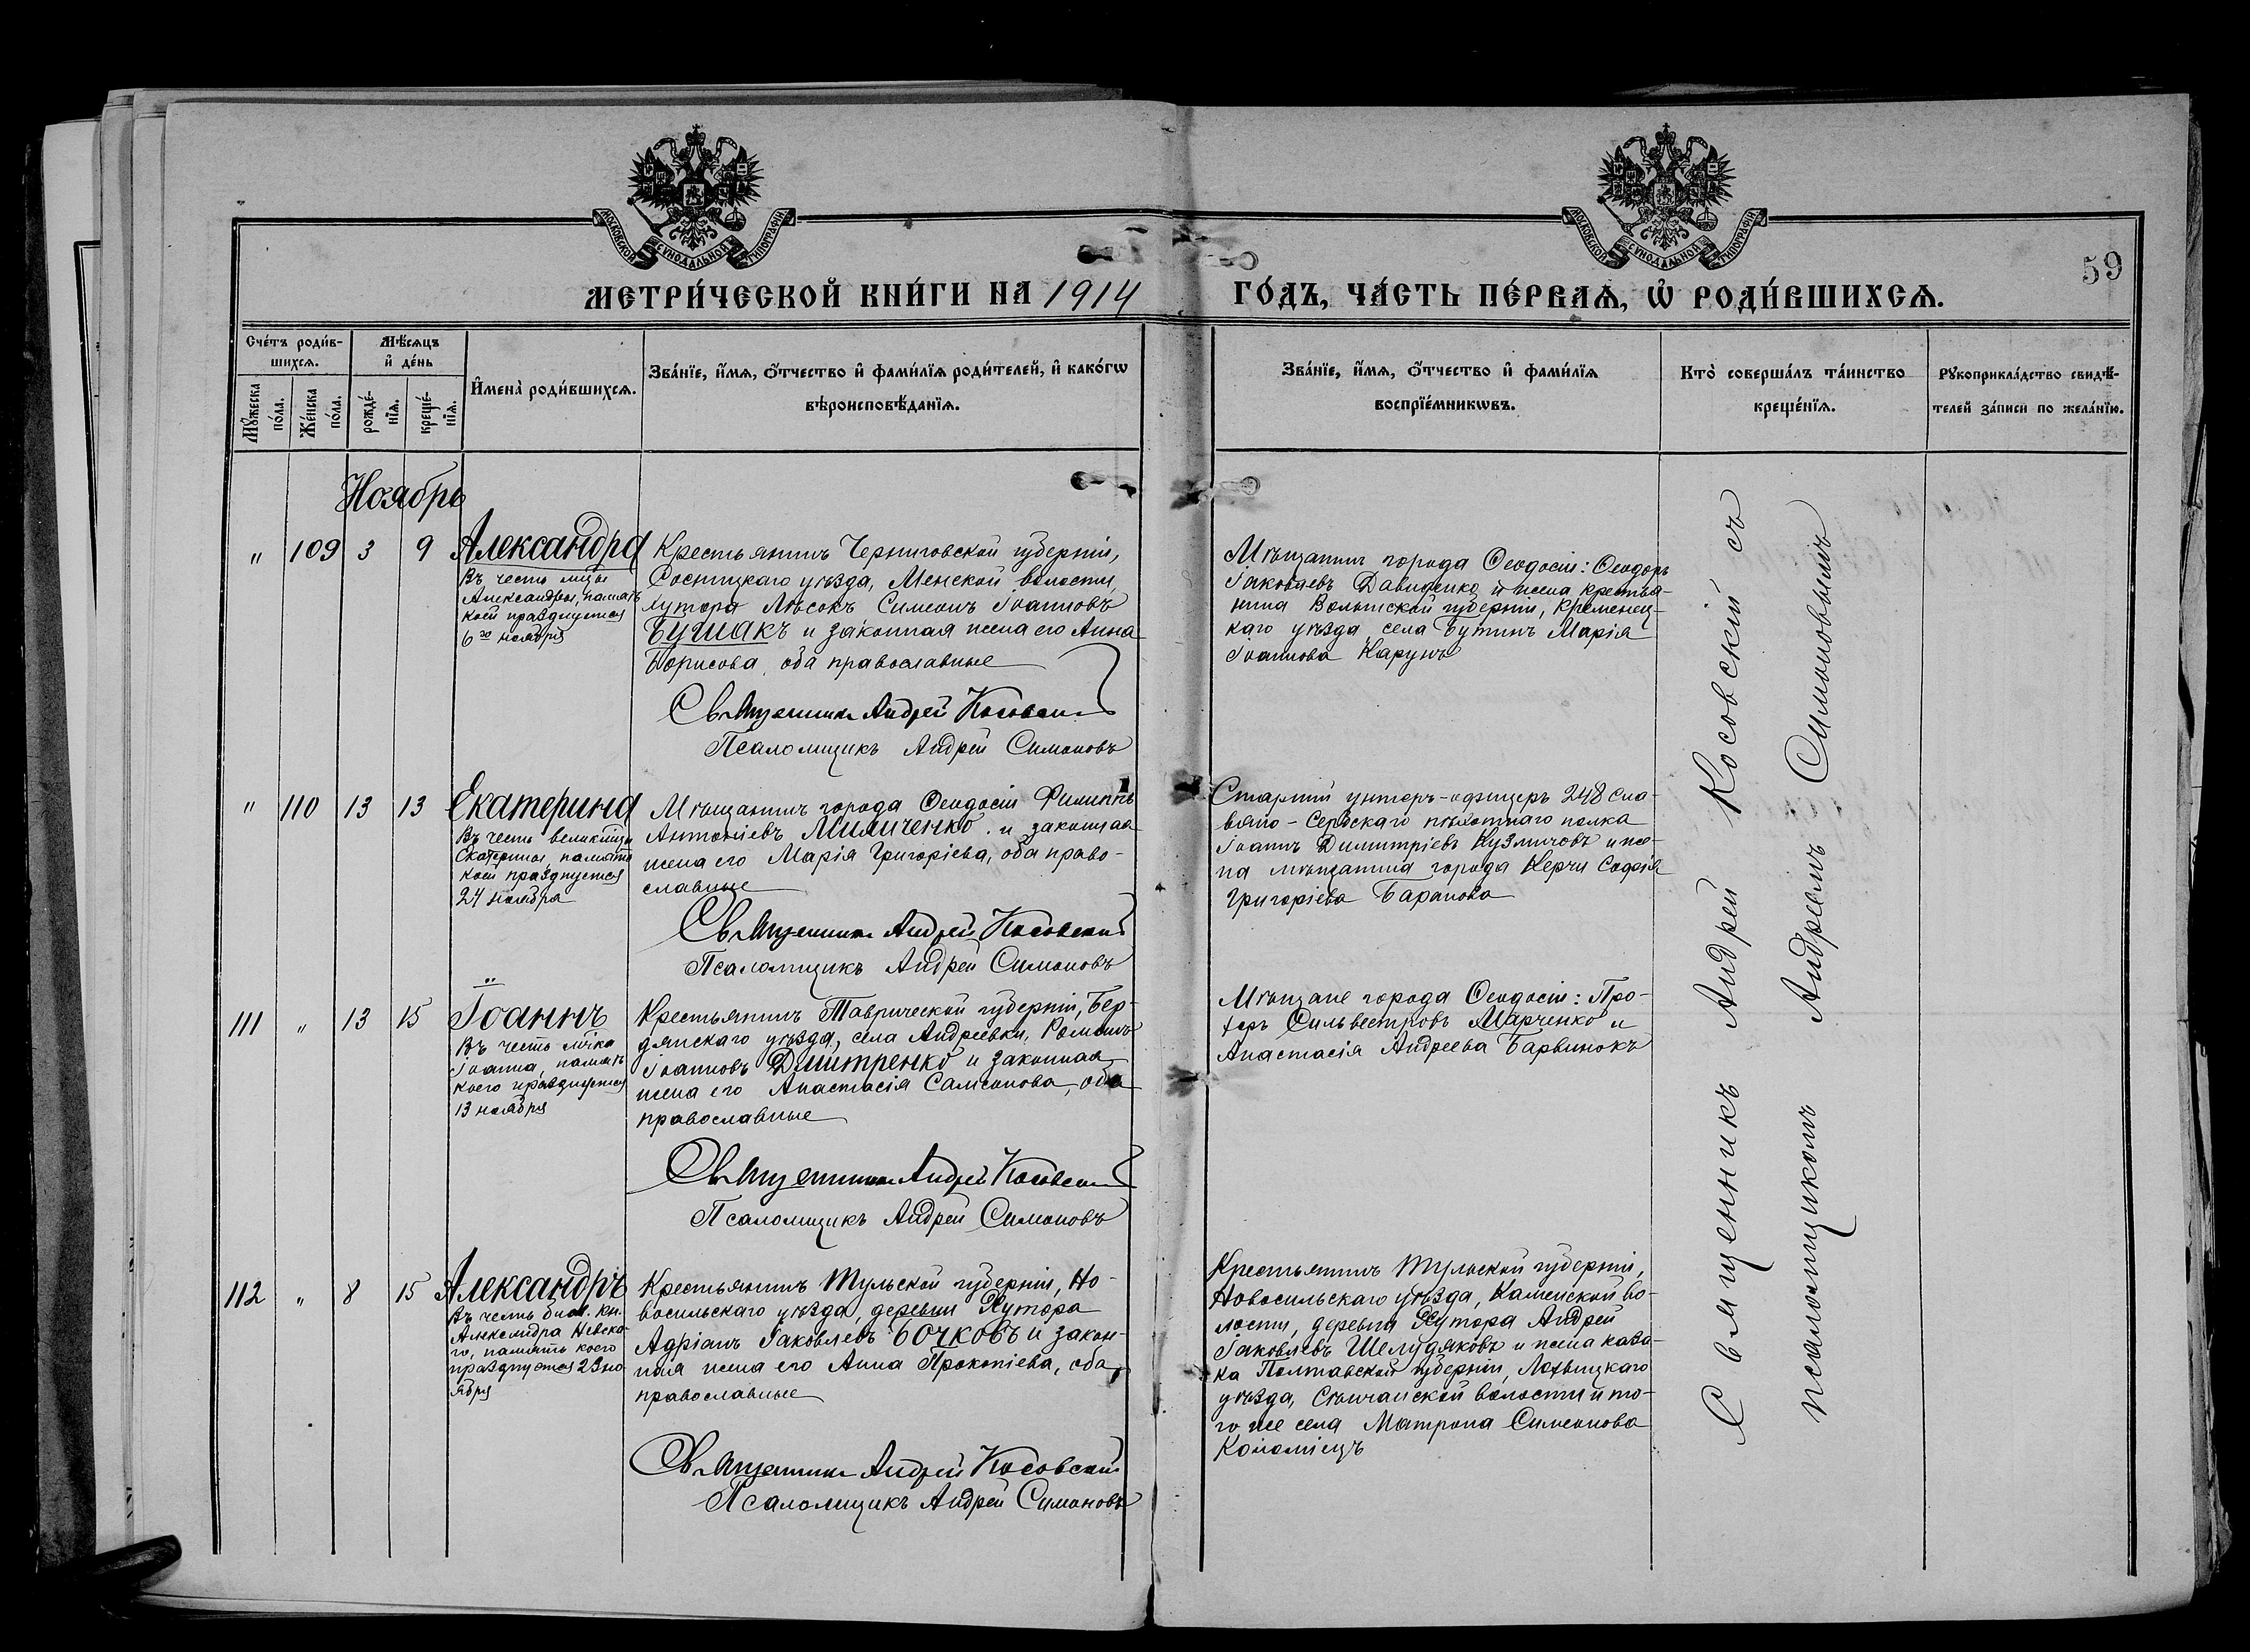 МОСКОВСКОЙ СѴНОДАЛЬНОЙ ТИПОГРАФІИ
МОСКОВСКОЙ СѴНОДАЛЬНОЙ ТИПОГРАФІИ
59
МЕТРИ́ЧЕСКОЙ КНИ́ГИ НА 1914
ГО́ДЪ, ЧА́СТЬ ПЕ́РВАЯ, Ѡ҆ РОДИ́ВШИХСЯ.
Сче́тъ роди́в-
шихся.
Мѣ́сяцъ
и҆ де́нь
Мꙋ́жеска
по́ла.
Же́нска
по́ла.
рожде́-
нїя.
креще́-
нїя.
И҆мена̀ роди́вшихся.
Зва́нїе, и҆́мя, ѻ҆́тчество и҆ фами́лїя роди́телей, и҆ како́гѡ
вѣроисповѣ́данїя.
Зва́нїе, и҆́мя, ѻ҆́тчество и҆ фами́лїя
воспрїе́мникѡвъ.
Кто̀ соверша́лъ та́инство
креще́нїя.
Рꙋкоприкла́дство свидѣ́-
телей за́писи по жела́нїю.
Ноябрь
" 109 3 9 Александра
Въ честь мцы
Александры, память
коей празднуется
6го ноября
Крестьянинъ Черниговской губерніи,
Сосницкаго уѣзда, Менской волости,
хутора Лѣсокъ Симеонъ Іоанновъ
Бушакъ и законная жена его Анна
Борисова, оба православные
Священникъ Андрей Косовскій
Псаломщикъ Андрей Симоновъ
Мѣщанинъ города Ѳеодосіи: Ѳеодоръ
Іаковлевъ Давиденко и жена крестья-
нина Волынской губерніи, Кременец-
каго уѣзда, села Бутинъ Марія
Іоаннова Карунъ
" 110 13 13 Екатерина
Въ честь великмцы
Екатерины, память
коей празднуется
24 ноября
Мѣщанинъ города Ѳеодосіи Филиппъ
Антоніевъ Миличенко и законная
жена его Марія Григоріева, оба право-
славные
Священникъ Андрей Косовскій
Псаломщикъ Андрей Симоновъ
Старшій унтеръ-офицеръ 248 Сла-
вяно-Сербскаго пѣхотнаго полка
Іоаннъ Димитріевъ Кузмичовъ и же-
на мѣщанина города Керчи Софія
Григоріева Баранова
111 " 13 15 Іоаннъ
Въ честь
Іоанна, память
коего празднуется
13 ноября
Крестьянинъ Таврической губерніи, Бер-
дянскаго уѣзда, села Андреевки, Романъ
Іоанновъ Дмитренко и законная
жена его Анастасія Самсонова, оба
православные
Священникъ Андрей Косовскій
Псаломщикъ Андрей Симоновъ
Мѣщане города Ѳеодосіи: Про-
хоръ Сильвестровъ Марченко и
Анастасія Андреева Барвинокъ
112 " 8 15 Александръ
Въ честь благ. кн.
Александра Невска-
го, память коего
празднуется 23 но-
ября
Крестьянинъ Тульской губерніи, Но-
восильскаго уѣзда, деревни Хутора
Адріанъ Іаковлевъ Бочковъ и закон-
ная жена его Анна Прокопіева, оба
православные
Священникъ Андрей Косовскій
Псаломщикъ Андрей Симоновъ
Крестьянинъ Тульской губерніи,
Новосильскаго уѣзда, Каменской во-
лости, деревни Хутора Андрей
Іаковлевъ Шелудяковъ и жена каза-
ка Полтавской губерніи, Лохвицкаго
уѣзда, Сѣнчанской волости и то-
го же села Матрона Симеонова
Коломіецъ
Священникъ Андрей Косовскій съ
псаломщикомъ Андреемъ Симоновымъ